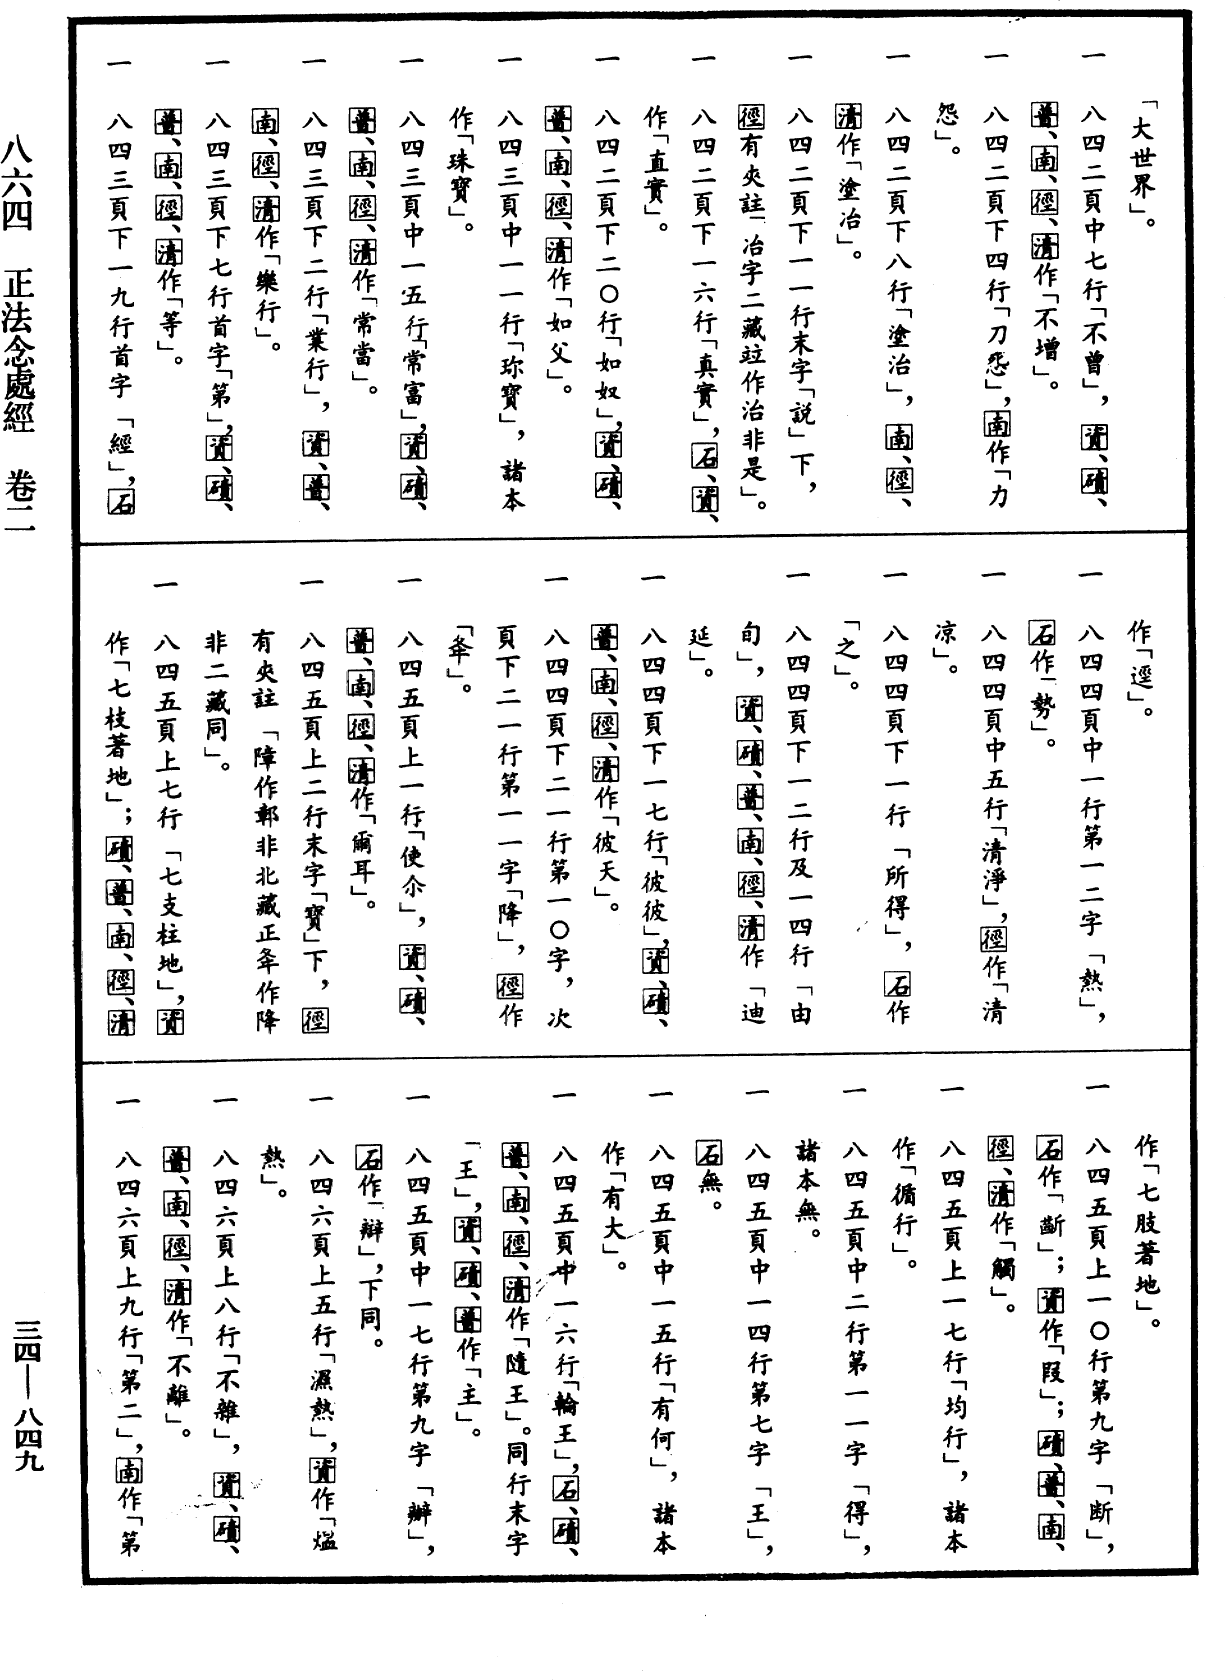 「大世界」。
一 八四二頁中七行「不曾」，資、磧、
普、南、徑、清作「不增」。
一 八四二頁下四行「刀怨」，南作「力
怨」。
一 八四二頁下八行「塗治」，南、徑、
清作「塗冶」。
一 八四二頁下一一行末字「説」下，
徑有夾註「冶字二藏竝作治非是」。
一 八四二頁下一六行「真實」，石、資、
作「直實」。
一 八四二頁下二〇行「如奴」，資、磧、
普、南、徑、清作「如父」。
一 八四三頁中一一行「珎寶」，諸本
作「珠寶」。
一 八四三頁中一五行「常富」，資、磧、
普、南、徑、清作「常當」。
一 八四三頁下二行「業行」，資、普、
南、徑、清作「樂行」。
一 八四三頁下七行首字「第」，資、磧、
普、南、徑、清作「等」。
一 八四三頁下一九行首字「經」，石
作「逕」。
一 八四四頁中一行第一二字「熱」，
石作「勢」。
一 八四四頁中五行「清淨」，徑作「清
凉」。
一 八四四頁下一行「所得」，石作
「之」。
一 八四四頁下一二行及一四行「由
旬」，資、磧、普、南、徑、清作「迪
延」。
一 八四四頁下一七行「彼彼」，資、磧、
普、南、徑、清作「彼天」。
一 八四四頁下二一行第一〇字，次
頁下二一行第一一字「降」，徑作
「夅」。
一 八四五頁上一行「使尒」，資、磧、
普、南、徑、清作「爾耳」。
一 八四五頁上二行末字「寶」下，徑
有夾註「障作鄣非北藏正夅作降
非二藏同」。
一 八四五頁上七行「七支柱地」，資
作「七枝著地」；磧、普、南、徑、清
作「七肢著地」。
一 八四五頁上一〇行第九字「断」，
石作「斷」；資作「叚」；磧、普、南、
徑、清作「觸」。
一 八四五頁上一七行「均行」，諸本
作「循行」。
一 八四五頁中二行第一一字「得」，
諸本無。
一 八四五頁中一四行第七字「王」，
石無。
一 八四五頁中一五行「有何」，諸本
作「有大」。
一 八四五頁中一六行「輪王」，石、磧、
普、南、徑、清作「隨王」。同行末字
「王」，資、磧、普作「主」。
一 八四五頁中一七行第九字「辦」，
石作「辯」，下同。
一 八四六頁上五行「濕熱」，資作「煴
熱」。
一 八四六頁上八行「不雜」，資、磧、
普、南、徑、清作「不離」。
一 八四六頁上九行「第二」，南作「第
八六四 正法念處經 卷二
三四—八四九